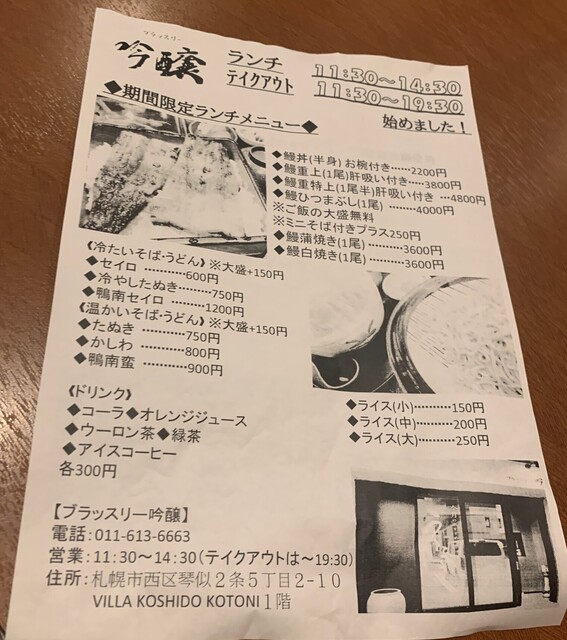 ブラッスリー
吟醸
ランチ 11:30〜14:30
テイクアウト 11:30〜19:30
始めました!
◆期間限定ランチメニュー◆
◆鰻丼(半身) お椀付き……2200円
◆鰻重上(1尾)肝吸い付き…3800円
◆鰻重特上(1尾半)肝吸い付き …4800円
◆鰻ひつまぶし(1尾) ………4000円
※ご飯の大盛無料
※ミニそば付きプラス250円
◆鰻蒲焼き(1尾)…………3600円
◆鰻白焼き(1尾)…………3600円
《冷たいそば・うどん》※大盛+150円
◆セイロ …………600円
◆冷やしたぬき………750円
◆鴨南セイロ …………1200円
《温かいそば・うどん》※大盛+150円
◆たぬき …………750円
◆かしわ …………800円
◆鴨南蛮 …………900円
《ドリンク》
◆コーラ◆オレンジジュース
◆ウーロン茶◆緑茶
◆アイスコーヒー
各300円
◆ライス(小)………150円
◆ライス(中)………200円
◆ライス(大)………250円
【ブラッスリー吟醸】
電話:011-613-6663
営業:11:30〜14:30(テイクアウトは〜19:30)
住所:札幌市西区琴似2条5丁目2-10
VILLA KOSHIDO KOTONI1階